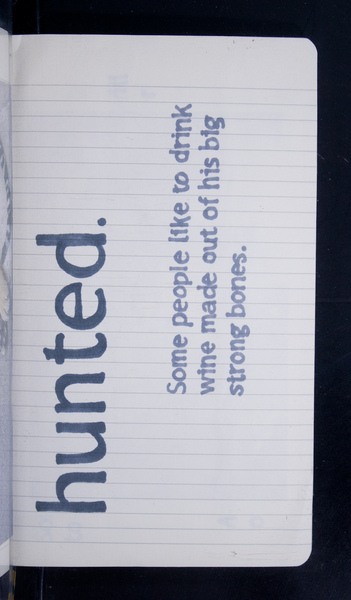 hunted.
Some people like to drink
wine made out of his big
strong bones.